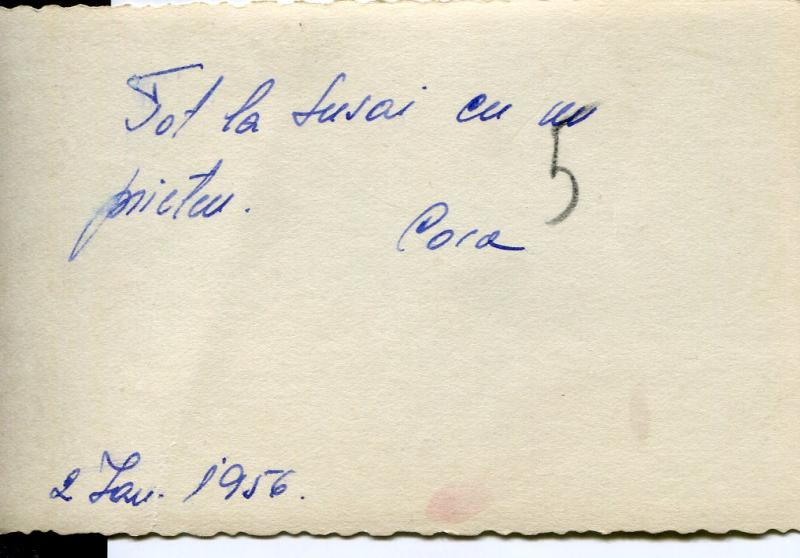 Tot la Susai cu un
5
prieten.
Cora
2 Ian. 1956.